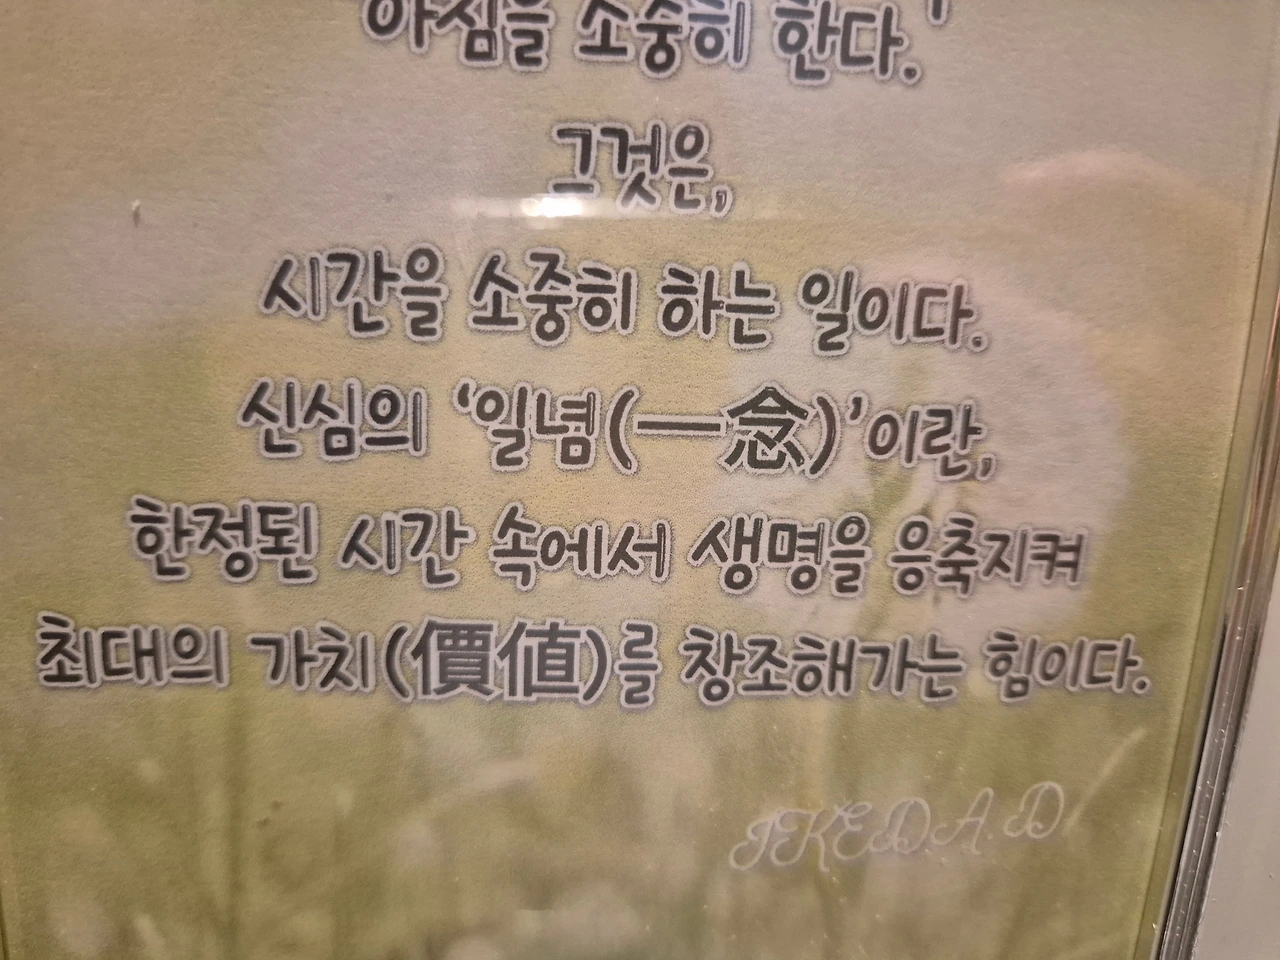 아침을 소중히 한다.
그것은,
시간을 소중히 하는 일이다.
신심의 ‘일념(一念)’이란,
한정된 시간 속에서 생명을 응축지켜
최대의 가치(價値)를 창조해가는 힘이다.
IKEDA. D